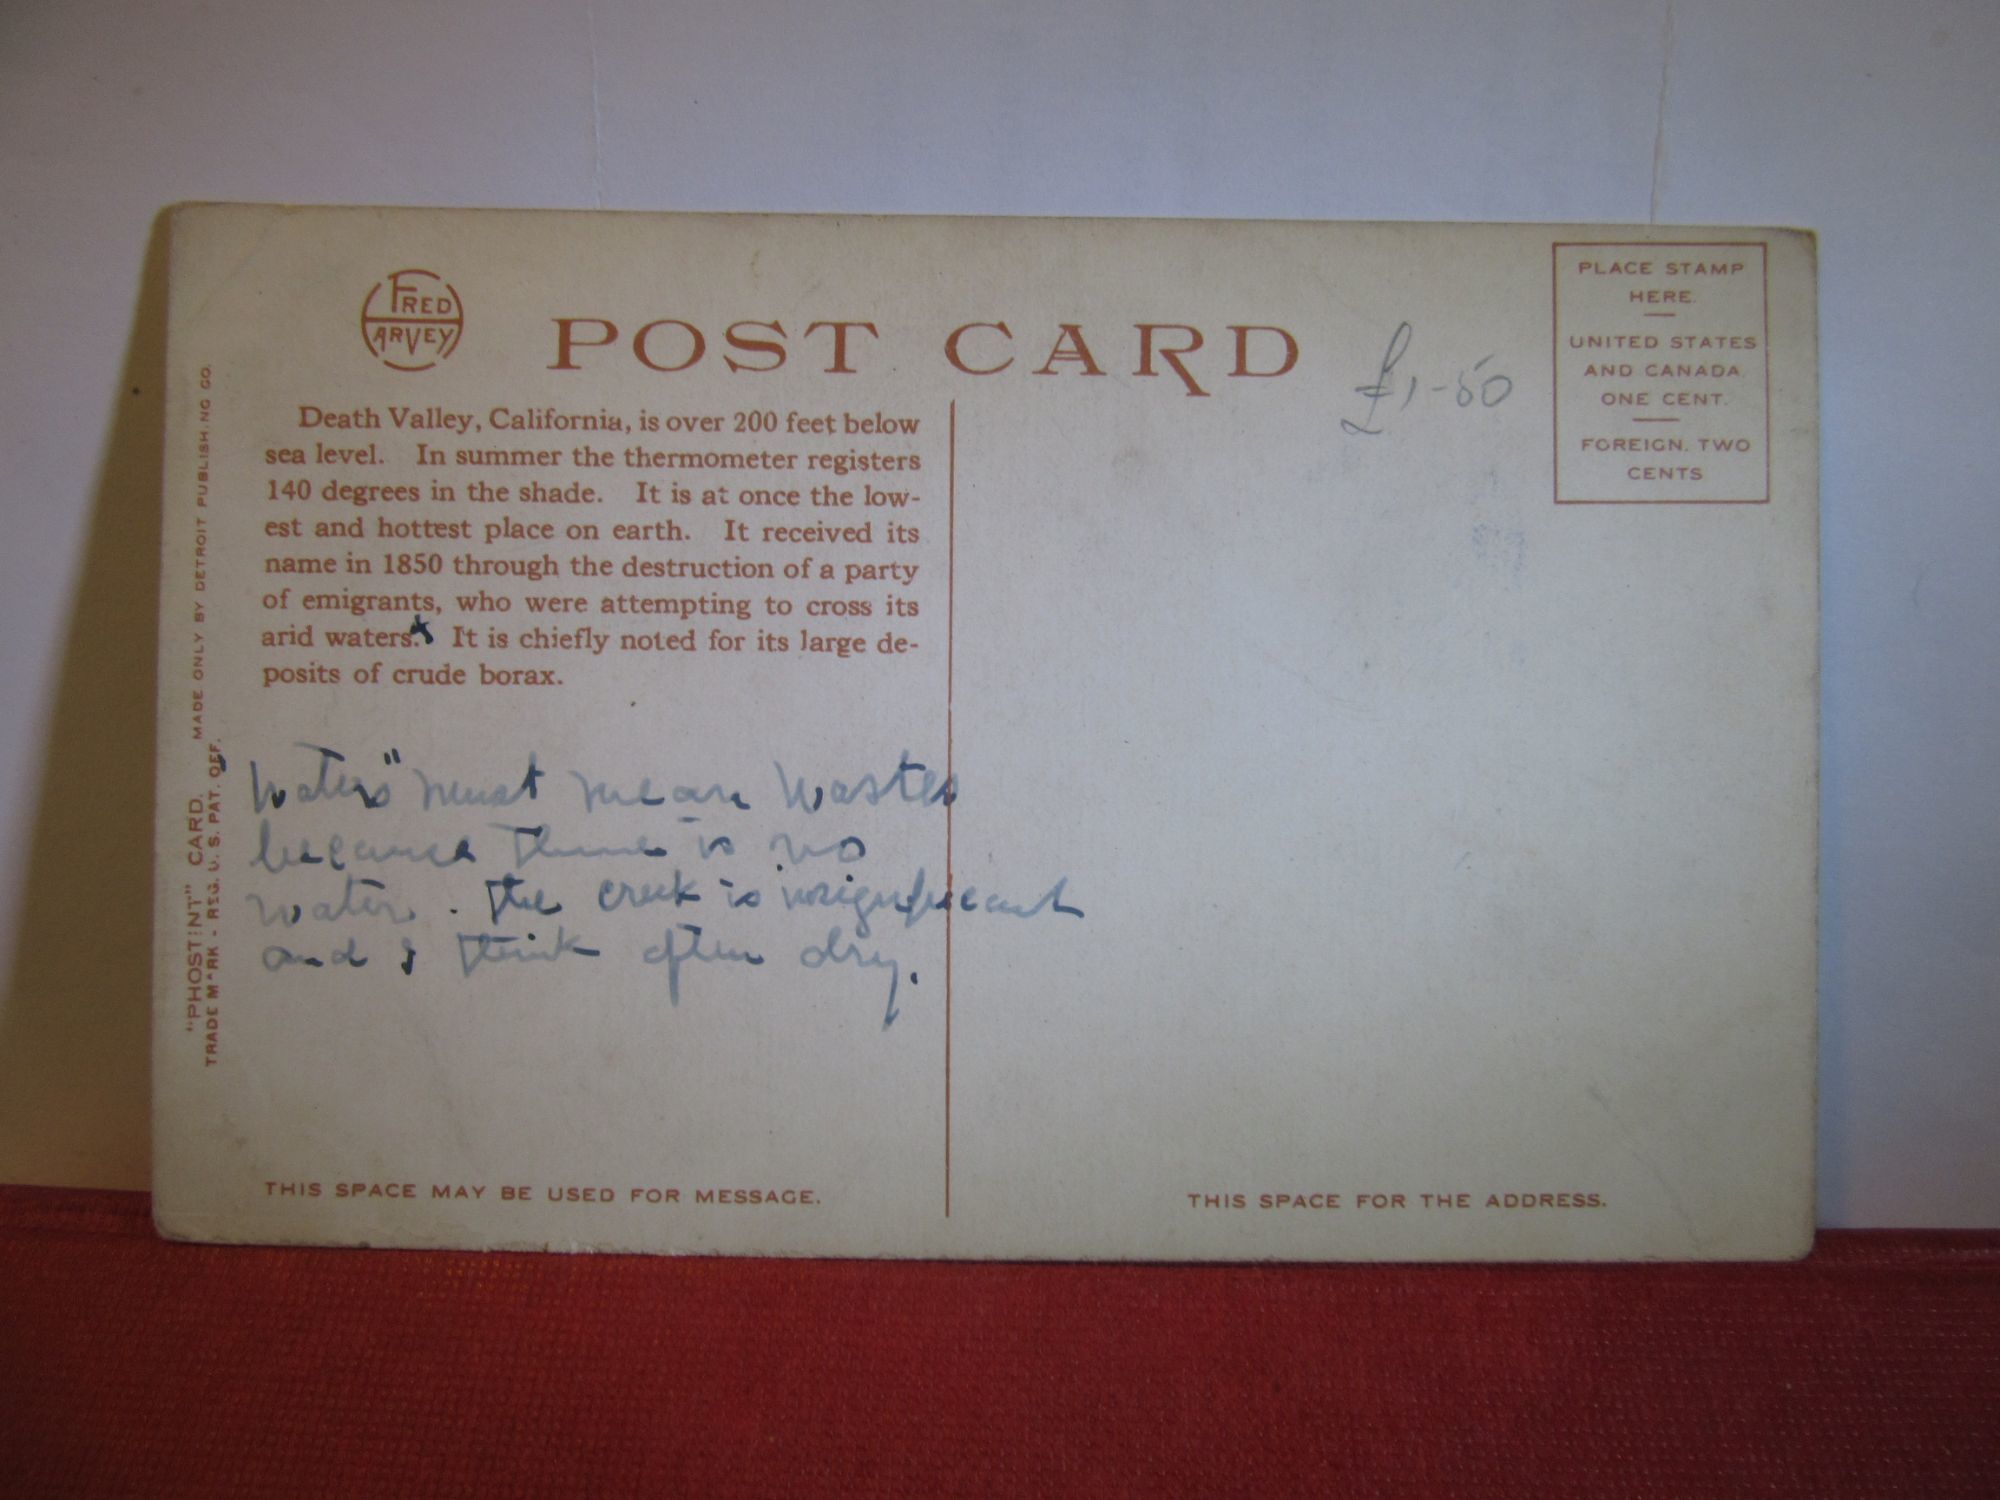 FRED
HARVEY
POST CARD
£1-50
PLACE STAMP
HERE.
UNITED STATES
AND CANADA.
ONE CENT.
FOREIGN. TWO
CENTS
Death Valley, California, is over 200 feet below
sea level. In summer the thermometer registers
140 degrees in the shade. It is at once the low-
est and hottest place on earth. It received its
name in 1850 through the destruction of a party
of emigrants, who were attempting to cross its
arid waters.x It is chiefly noted for its large de-
posits of crude borax.
"Waters" must mean wastes
because there is no
water. The creek is insignificant
and I think often dry.
"PHOSTINT" CARD. MADE ONLY BY DETROIT PUBLISHING CO.
TRADE MARK - REG. U. S. PAT. OFF.
THIS SPACE MAY BE USED FOR MESSAGE.
THIS SPACE FOR THE ADDRESS.